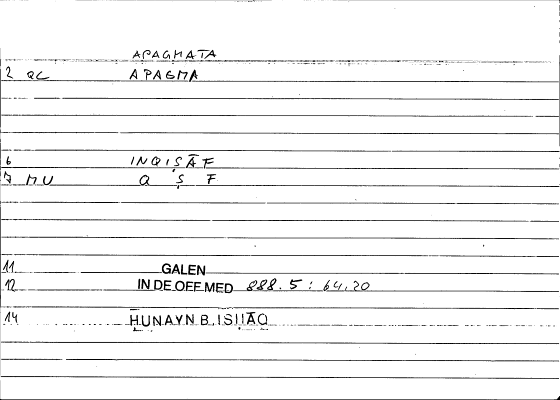 APAGMATA
2 QC APAGMA
6 INQIṢĀF
7 MU Q Ṣ F
11 GALEN
12 IN DE OFF. MED 888.5 : 64.20
14 ḤUNAYN B. ISḤĀQ